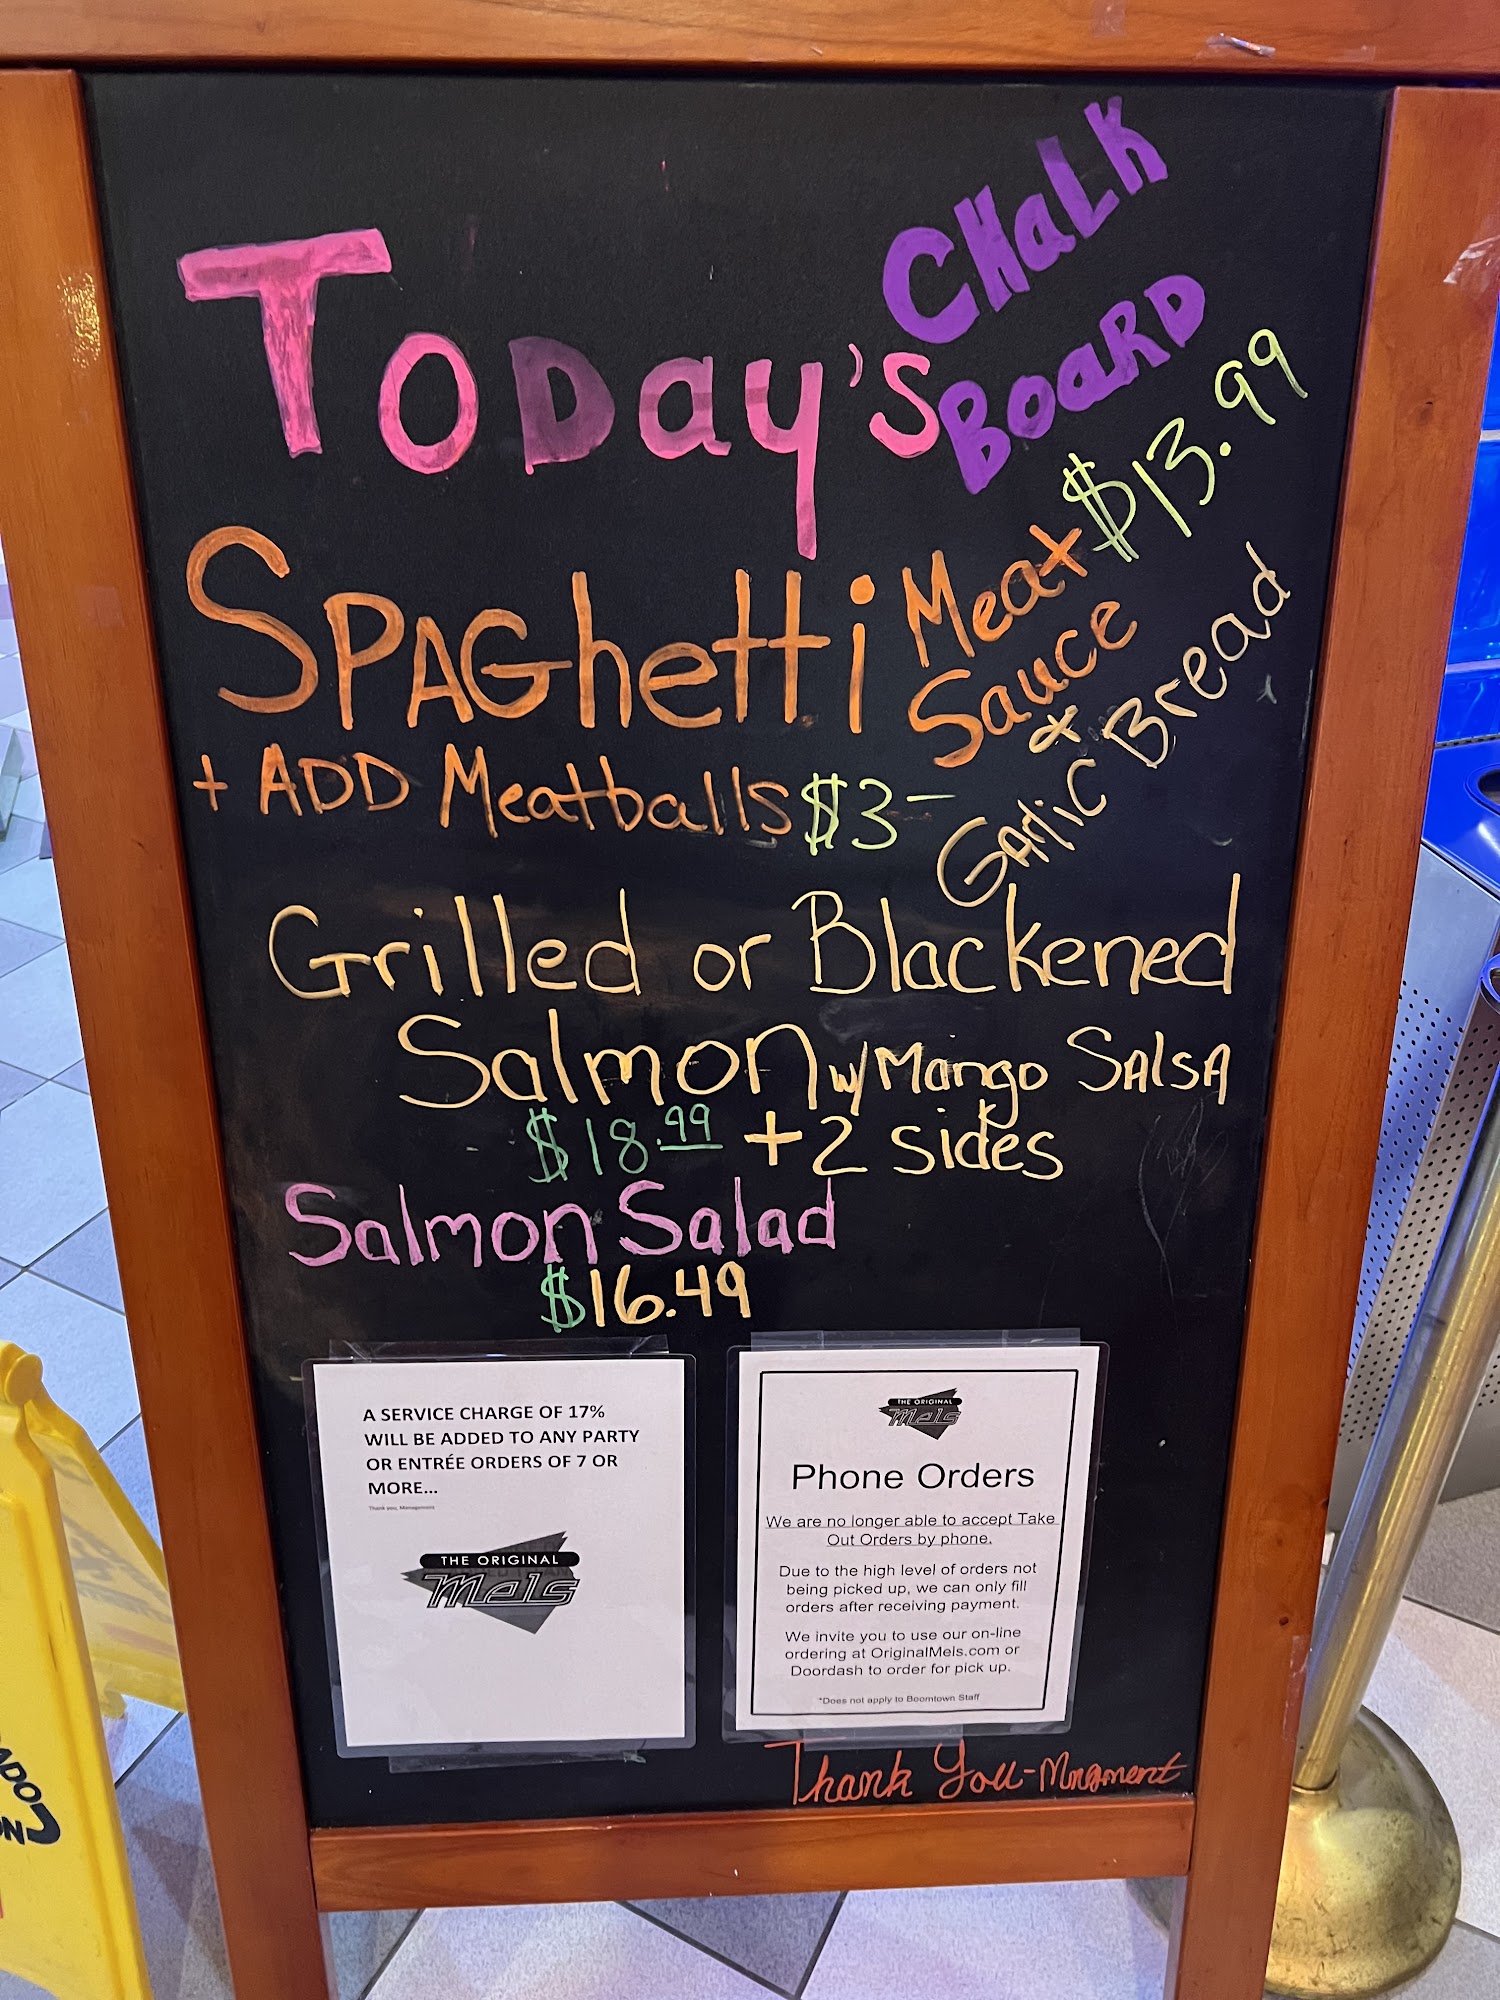 Today's
CHaLK
BoaRD
SPAGhetti
Meat
Sauce
$13.99
& Garlic Bread
+ ADD Meatballs $3-
Grilled or Blackened
Salmon w/ Mango SAlsA
$18.99 + 2 sides
Salmon Salad
$16.49
A SERVICE CHARGE OF 17%
WILL BE ADDED TO ANY PARTY
OR ENTRÉE ORDERS OF 7 OR
MORE...
Thank you, Management
THE ORIGINAL
Mels
THE ORIGINAL
Mels
Phone Orders
We are no longer able to accept Take
Out Orders by phone.
Due to the high level of orders not
being picked up, we can only fill
orders after receiving payment.
We invite you to use our on-line
ordering at OriginalMels.com or
Doordash to order for pick up.
*Does not apply to Boomtown Staff
Thank You-Mngment